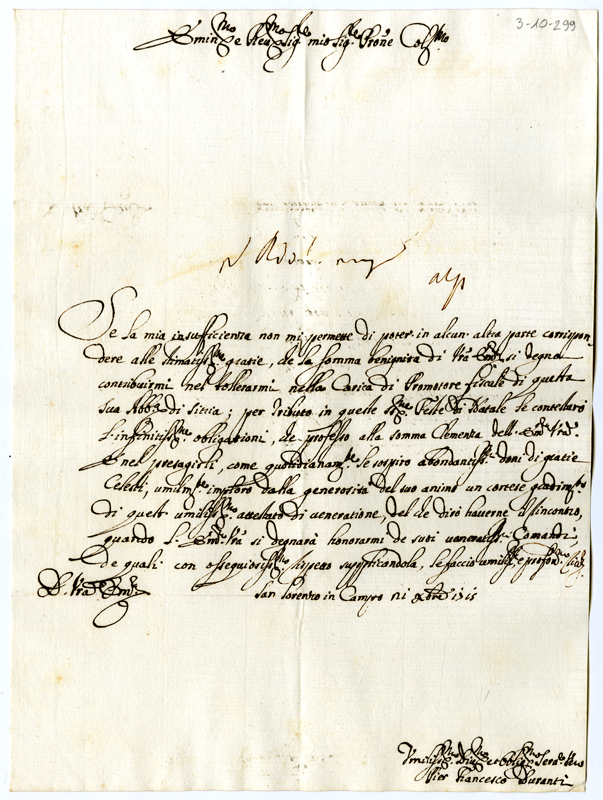 3-10-299
Emin.mo e Reu.mo Sig.re mio Sig.re Prone Col.mo
Se la mia insufficienza non mi permette di poter in alcun' altra parte corrispon
dere alle stimatiss.me gratie, che la somma benignità di V'ra Em.za si degna
contribuirmi nel tollerarmi nella Carica di Promotore fiscale di questa
sua Abb.a di Sitria; per tributo in queste Feste di Natale le consacraro
l'infinitiss.e obligationi, che professo alla somma Clemenza dell'Em.za V'ra.
E nel presagirli, come quotidianam.te le sospiro abondantiss.i doni di gratie
Celesti, umilm.te imploro dalla generosità del suo animo un cortese gradim.to
di quest' umiliss.mo attestato di veneratione, del che dirò haverne il rincontro,
quando l'Em.za V'ra si degnarà honorarmi de suoi veneratiss.i Comandi,
de quali con ossequiosiss.mo rispetto supplicandola, le faccio umiliss.a e profon.ma
D. V'ra Em.za
San Lorenzo in Campo li Xbre 1715
Umiliss.mo Diu.mo et Obblig.mo Serv.re Vero
Pier Francesco Duranti